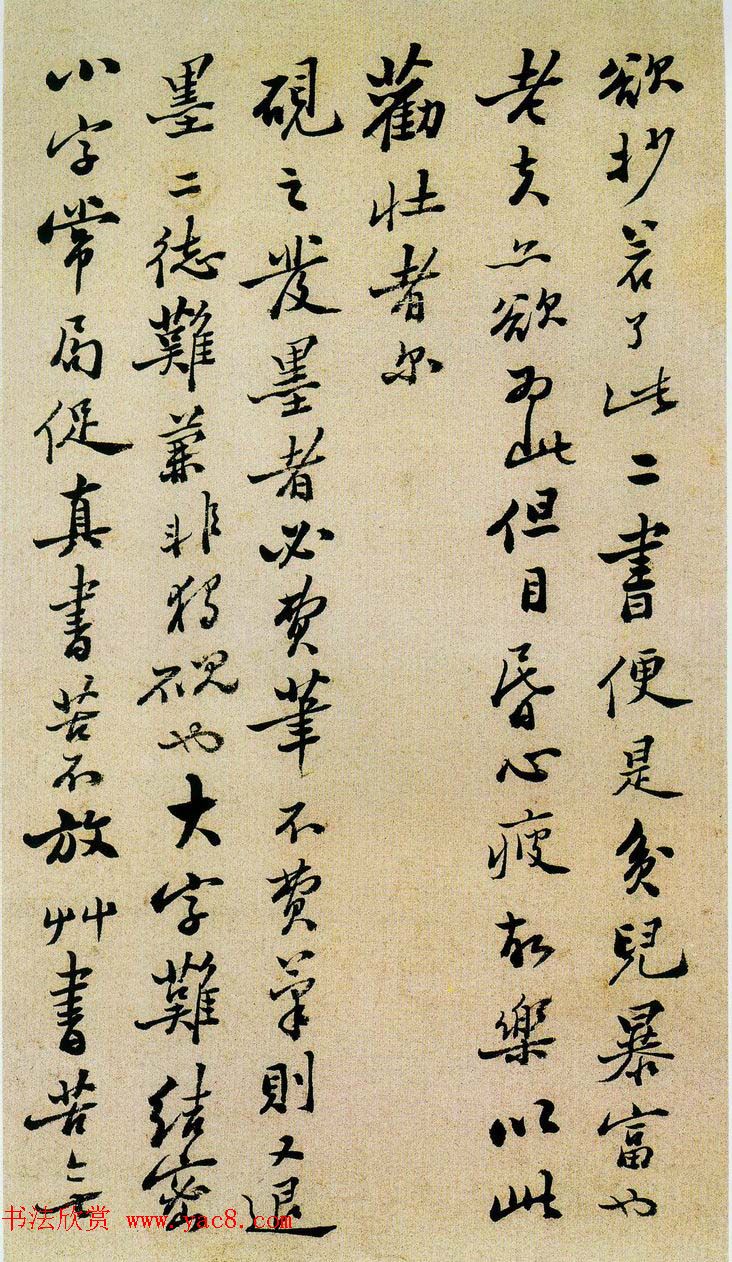 欲抄若了此二書便是貧兒暴富也
老夫亦欲為此但目昏心疲故樂以此
勸壯者尔
硯之發墨者必費筆不費筆則又退
墨二德難兼非獨硯也大字難結密
小字常局促真書苦不放艸書苦無
书法欣赏 www.yac8.com